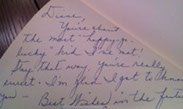 Dave,
You're about
the most "happy go
lucky" kid I've met!
Stay that way, you're really
sweet. I'm glad I got to know
you — Best Wishes in the future